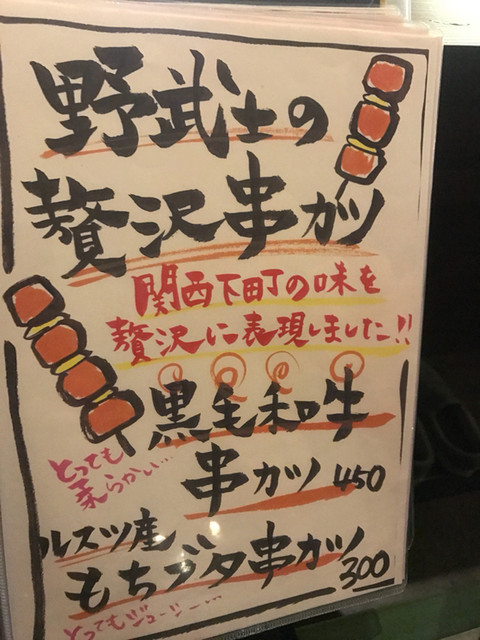 野武士の
贅沢串カツ
関西下町の味を
贅沢に表現しました!!
黒毛和牛
とっても
柔らかい…
串カツ 450
ルスツ産
もちブタ串カツ
300
とってもジューシー…